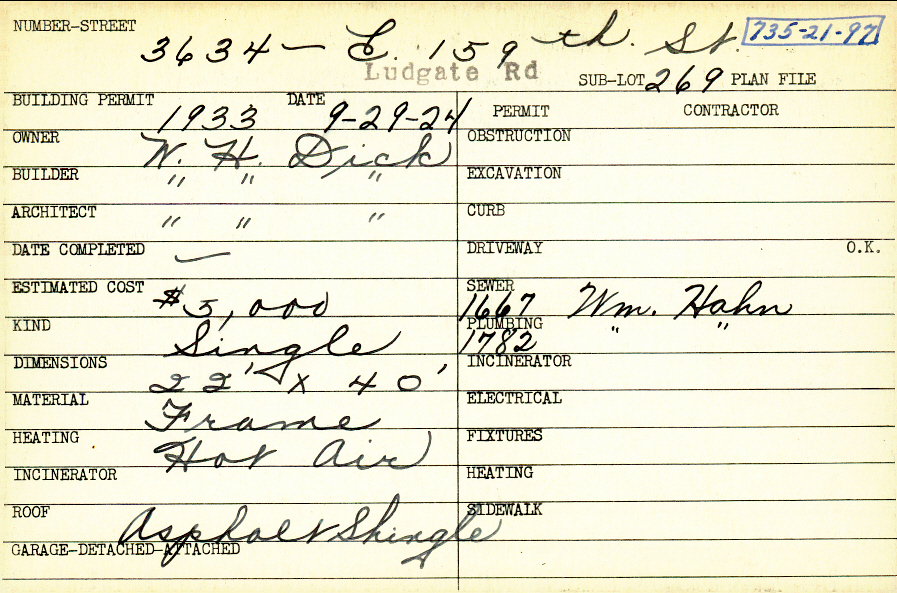 NUMBER-STREET 3634 - E. 159th. St. 735-21-97
Ludgate Rd
SUB-LOT 269 PLAN FILE
BUILDING PERMIT 1933 DATE 9-29-24 PERMIT CONTRACTOR
OWNER W. H. Dick OBSTRUCTION
BUILDER " " " EXCAVATION
ARCHITECT " " " CURB
DATE COMPLETED — DRIVEWAY O.K.
ESTIMATED COST $5,000 SEWER 1667 Wm. Hahn
KIND Single PLUMBING 1782 " "
DIMENSIONS 22' x 40' INCINERATOR
MATERIAL Frame ELECTRICAL
HEATING Hot Air FIXTURES
INCINERATOR HEATING
ROOF Asphalt Shingle SIDEWALK
GARAGE-DETACHED-ATTACHED